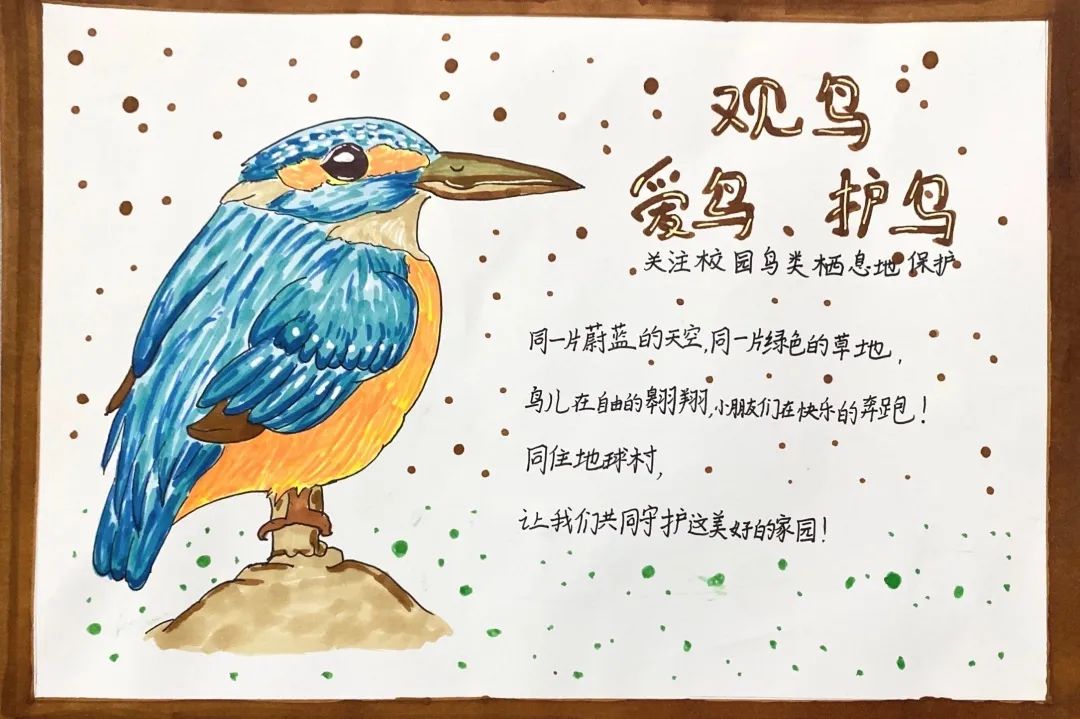 观鸟
爱鸟、护鸟
关注校园鸟类栖息地保护
同一片蔚蓝的天空,同一片绿色的草地,
鸟儿在自由的翱翔,小朋友们在快乐的奔跑!
同住地球村,
让我们共同守护这美好的家园!